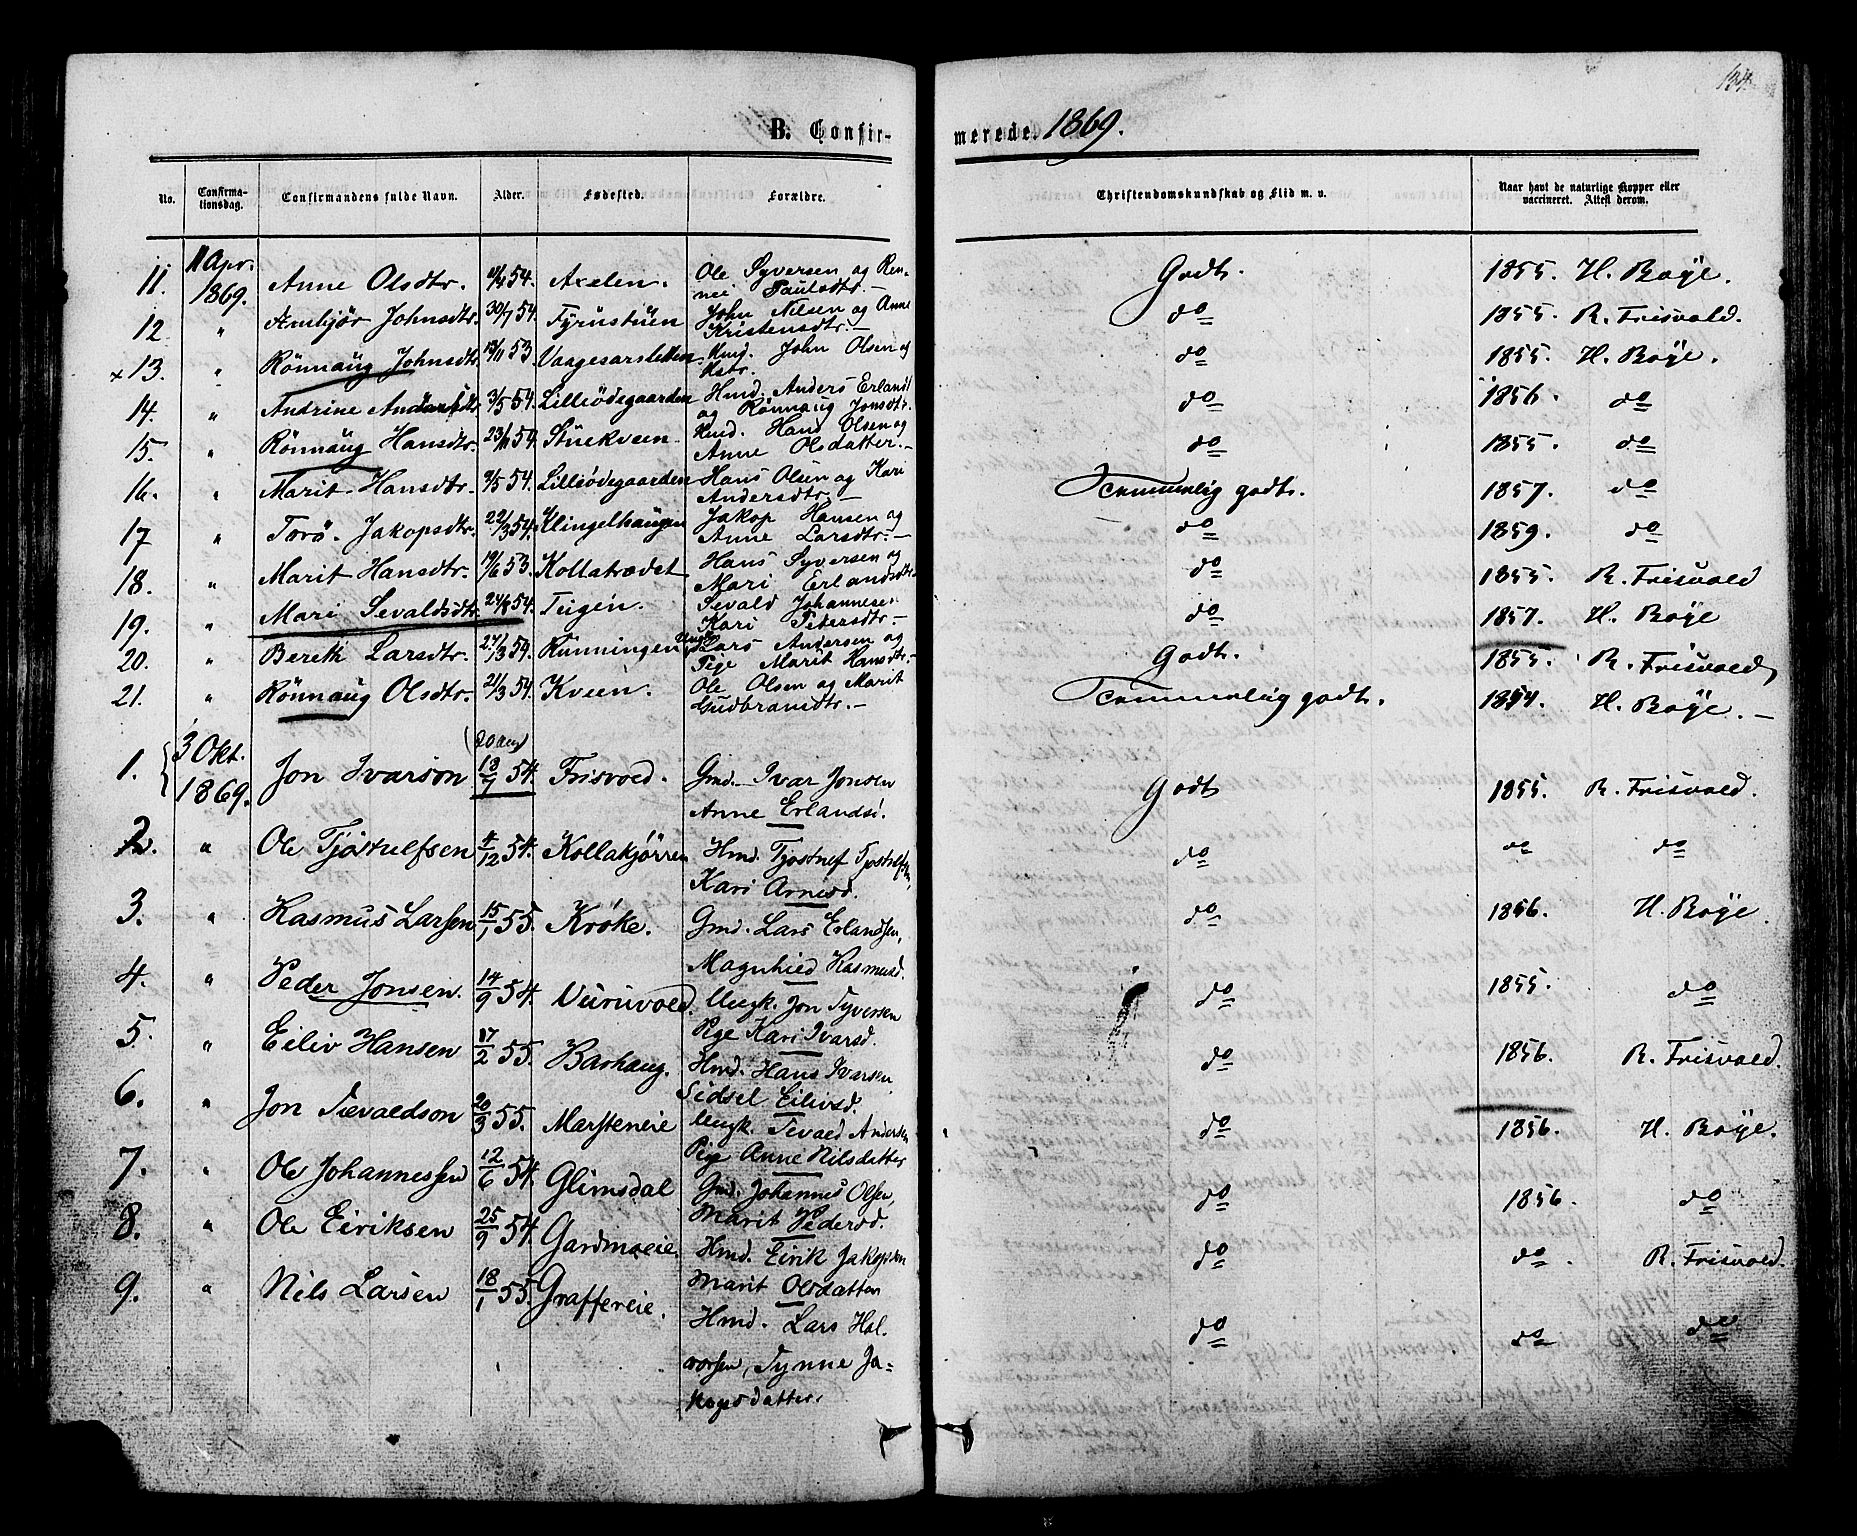 134.
B. Confirmerede. 1869.
No. Confirmationsdag. Confirmandens fulde Navn. Alder. Fødested. Forældre. Christendomskundskab og Flid m. v. Naar havt de naturlige Kopper eller vaccineret. Attest derom.
11. 11 Apr. 1869. Anne Olsdtr. 54. Axelen. Ole Syversen og Rennei Paulsdtr.— Godt. 1855. H. Boye.
12. " Ambjør Johnsdtr. 30/7 54. Fyrustuen John Nilsen og Anne Kristensdtr.— do 1855. R. Frisvold.
x 13. " Rönnaug Johnsdtr. 53. Vaagesarsletten Hmd. John Olsen og Hstr. do 1855. H. Boye.
14. " Andrine Andersdtr. 3/5 54. Lilleödegaarden Hmd. Anders Erlands og Rönnaug Jonsdtr. do 1856. do
15. " Rönnaug Hansdtr. 54. Stuekveen Hmd. Hans Olsen og Anne Olsdatter.— do 1855. do
16. " Marit Hansdtr. 54. Lilleödegaarden Hans Olsen og Kari Andersdtr.— Temmelig godt. 1857. do
17 " Torö Jakopsdtr. 22/3 54. Klingelhaugen Jakop Hansen og Anne Larsdtr.— do 1859. do
18. " Marit Hansdtr. 19/6 53. Kollatrædet Hans Syversen og Mari Erlandsdtr. do 1855. R. Frisvold
19. " Mari Sevaldsdtr. 54. Teigen. Sevald Johannese. Kari Petersdtr.— do 1857. H. Boye
20. " Bereth Larsdtr. Runningen Ungk. Lars Andersen og Pige Marit Hansdtr.— Godt. 1855. R. Frisvold
21. " Rönnaug Olsdtr. 21/3 54. Kveen. Ole Olsen og Marit Gudbrandtr.— Temmelig godt. 1854. H. Boye.—
1. 3 Okt. 1869. Jon Ivarson 18/7 54. Frisvold. Gmd. Ivar Jonsen Anne Erlandsd. Godt 1855. R. Frisvold.
2. " Ole Tjøstulfsen 4/12 54. Kollakjørren Hmd. Tjostulf Tjostulfsen, Kari Arnesd. do do do
3. " Rasmus Larsen 15/1 55. Krøke. Gmd. Lars Erlandsen, Magnhild Rasmusd. do 1856. H. Boye.
4. " Peder Jonsen. 14/9 54. Vuruvold. Ungk. Jon Syversen Pige Kari Ivarsd. do 1855. do
5. " Eiliv Hansen 17/2 55. Barhaug. Hmd. Hans Ivarsen Sidsel Eilivsd. do 1856. R. Frisvold.
6. " Jon Sevaldson 20/3 55. Marsteneie Ungk. Sevald Andersen Pige Anne Nilsdatter do 1856. H. Boye.
7. " Ole Johannessen 12/6 54. Glimsdal Gmd. Johannes Olsen, Marit Pedersd. do 1856. do
8. " Ole Eiriksen 25/9 54. Gardmoeie. Hmd. Eirik Jakopsen Marit Olsdatter do do R. Frisvold.
9. " Nils Larsen 18/1 55. Graffereie. Hmd. Lars Halvorsen, Synne Jakopsdatter. do do do